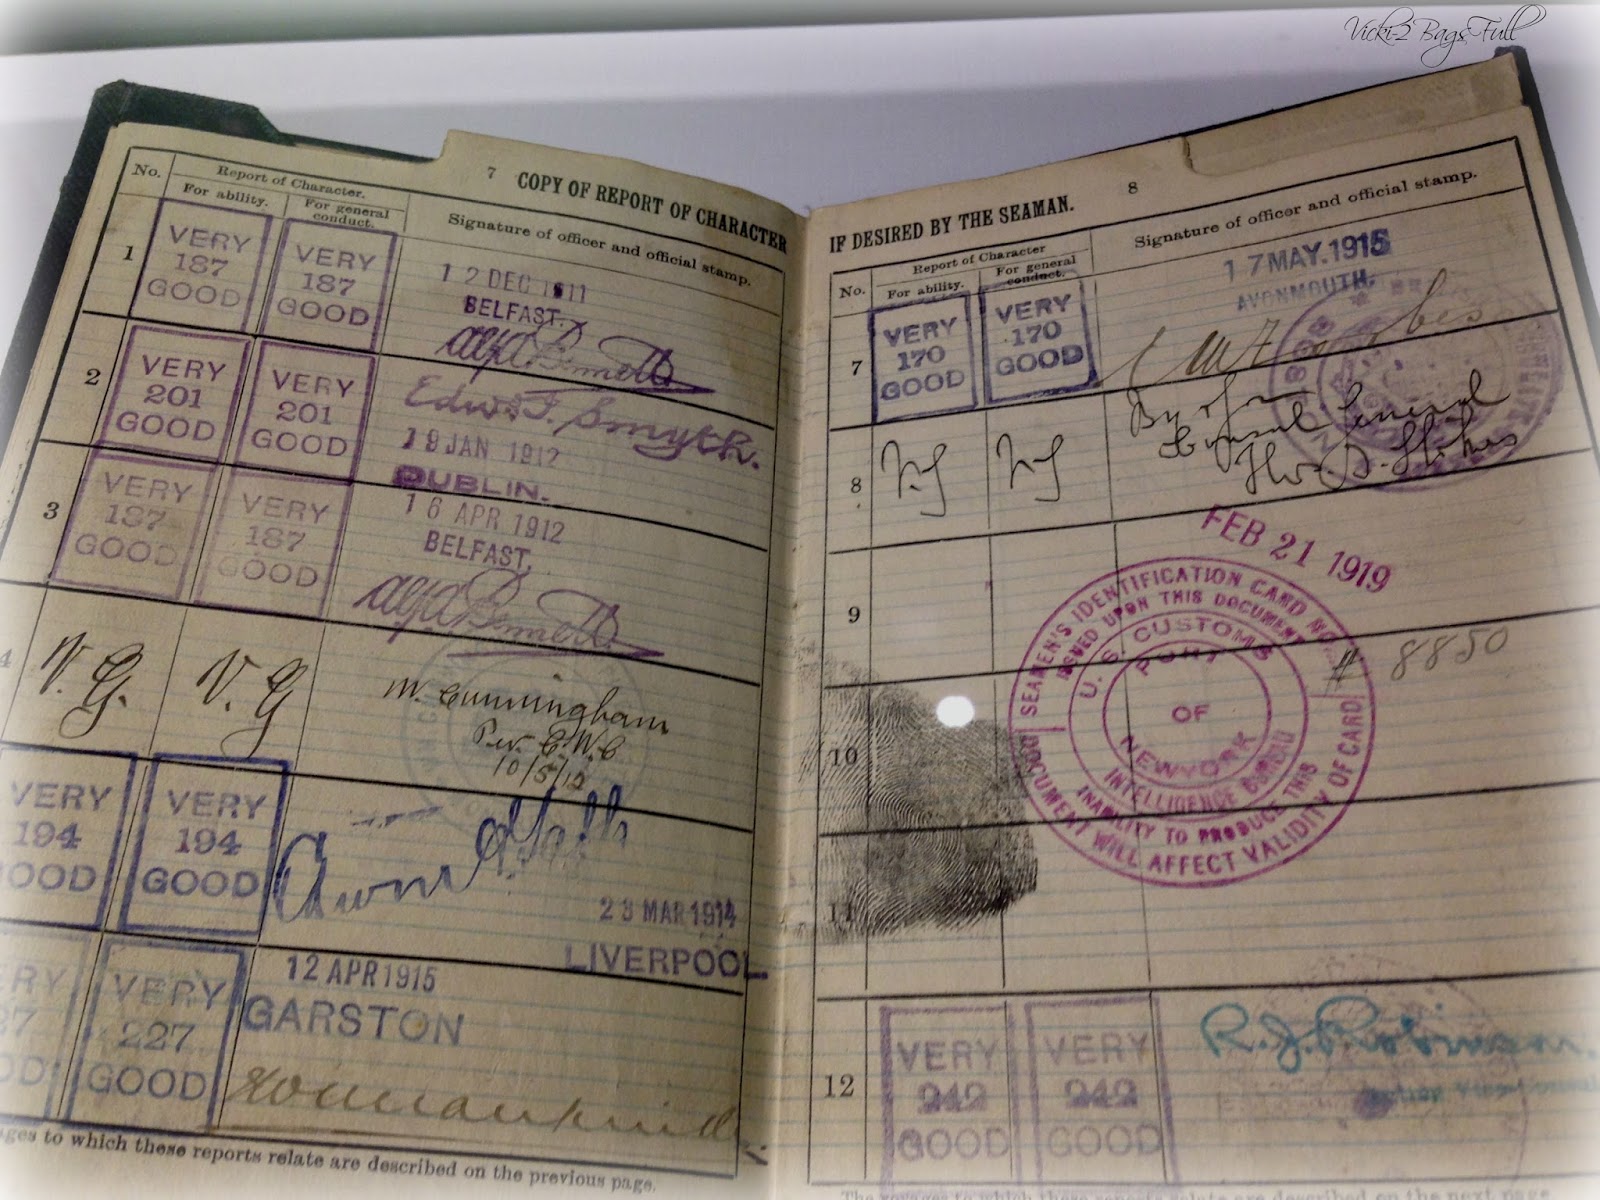 Vicki-2 Bags Full
7 COPY OF REPORT OF CHARACTER
No.
Report of Character.
For ability.
For general conduct.
Signature of officer and official stamp.
1
VERY 187 GOOD
VERY 187 GOOD
12 DEC 1911
BELFAST.
2
VERY 201 GOOD
VERY 201 GOOD
Edw. F. Smyth.
19 JAN 1912
DUBLIN.
3
VERY 187 GOOD
VERY 187 GOOD
16 APR 1912
BELFAST.
4
V. G.
V. G
W. Cunningham
10/5/12
VERY 194 GOOD
VERY 194 GOOD
23 MAR 1914
LIVERPOOL
VERY 227 GOOD
12 APR 1915
GARSTON
to which these reports relate are described on the previous page.
8
IF DESIRED BY THE SEAMAN.
No.
Report of Character
For ability.
For general conduct.
Signature of officer and official stamp.
7
VERY 170 GOOD
VERY 170 GOOD
17 MAY. 1915
AVONMOUTH.
8
Consul General
9
FEB 21 1919
SEAMEN'S IDENTIFICATION CARD NO.
ISSUED UPON THIS DOCUMENT
U. S. CUSTOMS
PORT
OF
NEW YORK
INTELLIGENCE BUREAU
INABILITY TO PRODUCE THIS
DOCUMENT WILL AFFECT VALIDITY OF CARD
# 8850
10
11
12
VERY 242 GOOD
VERY 242 GOOD
R. J. Robinson.
The voyages to which these reports relate are described on the next page.